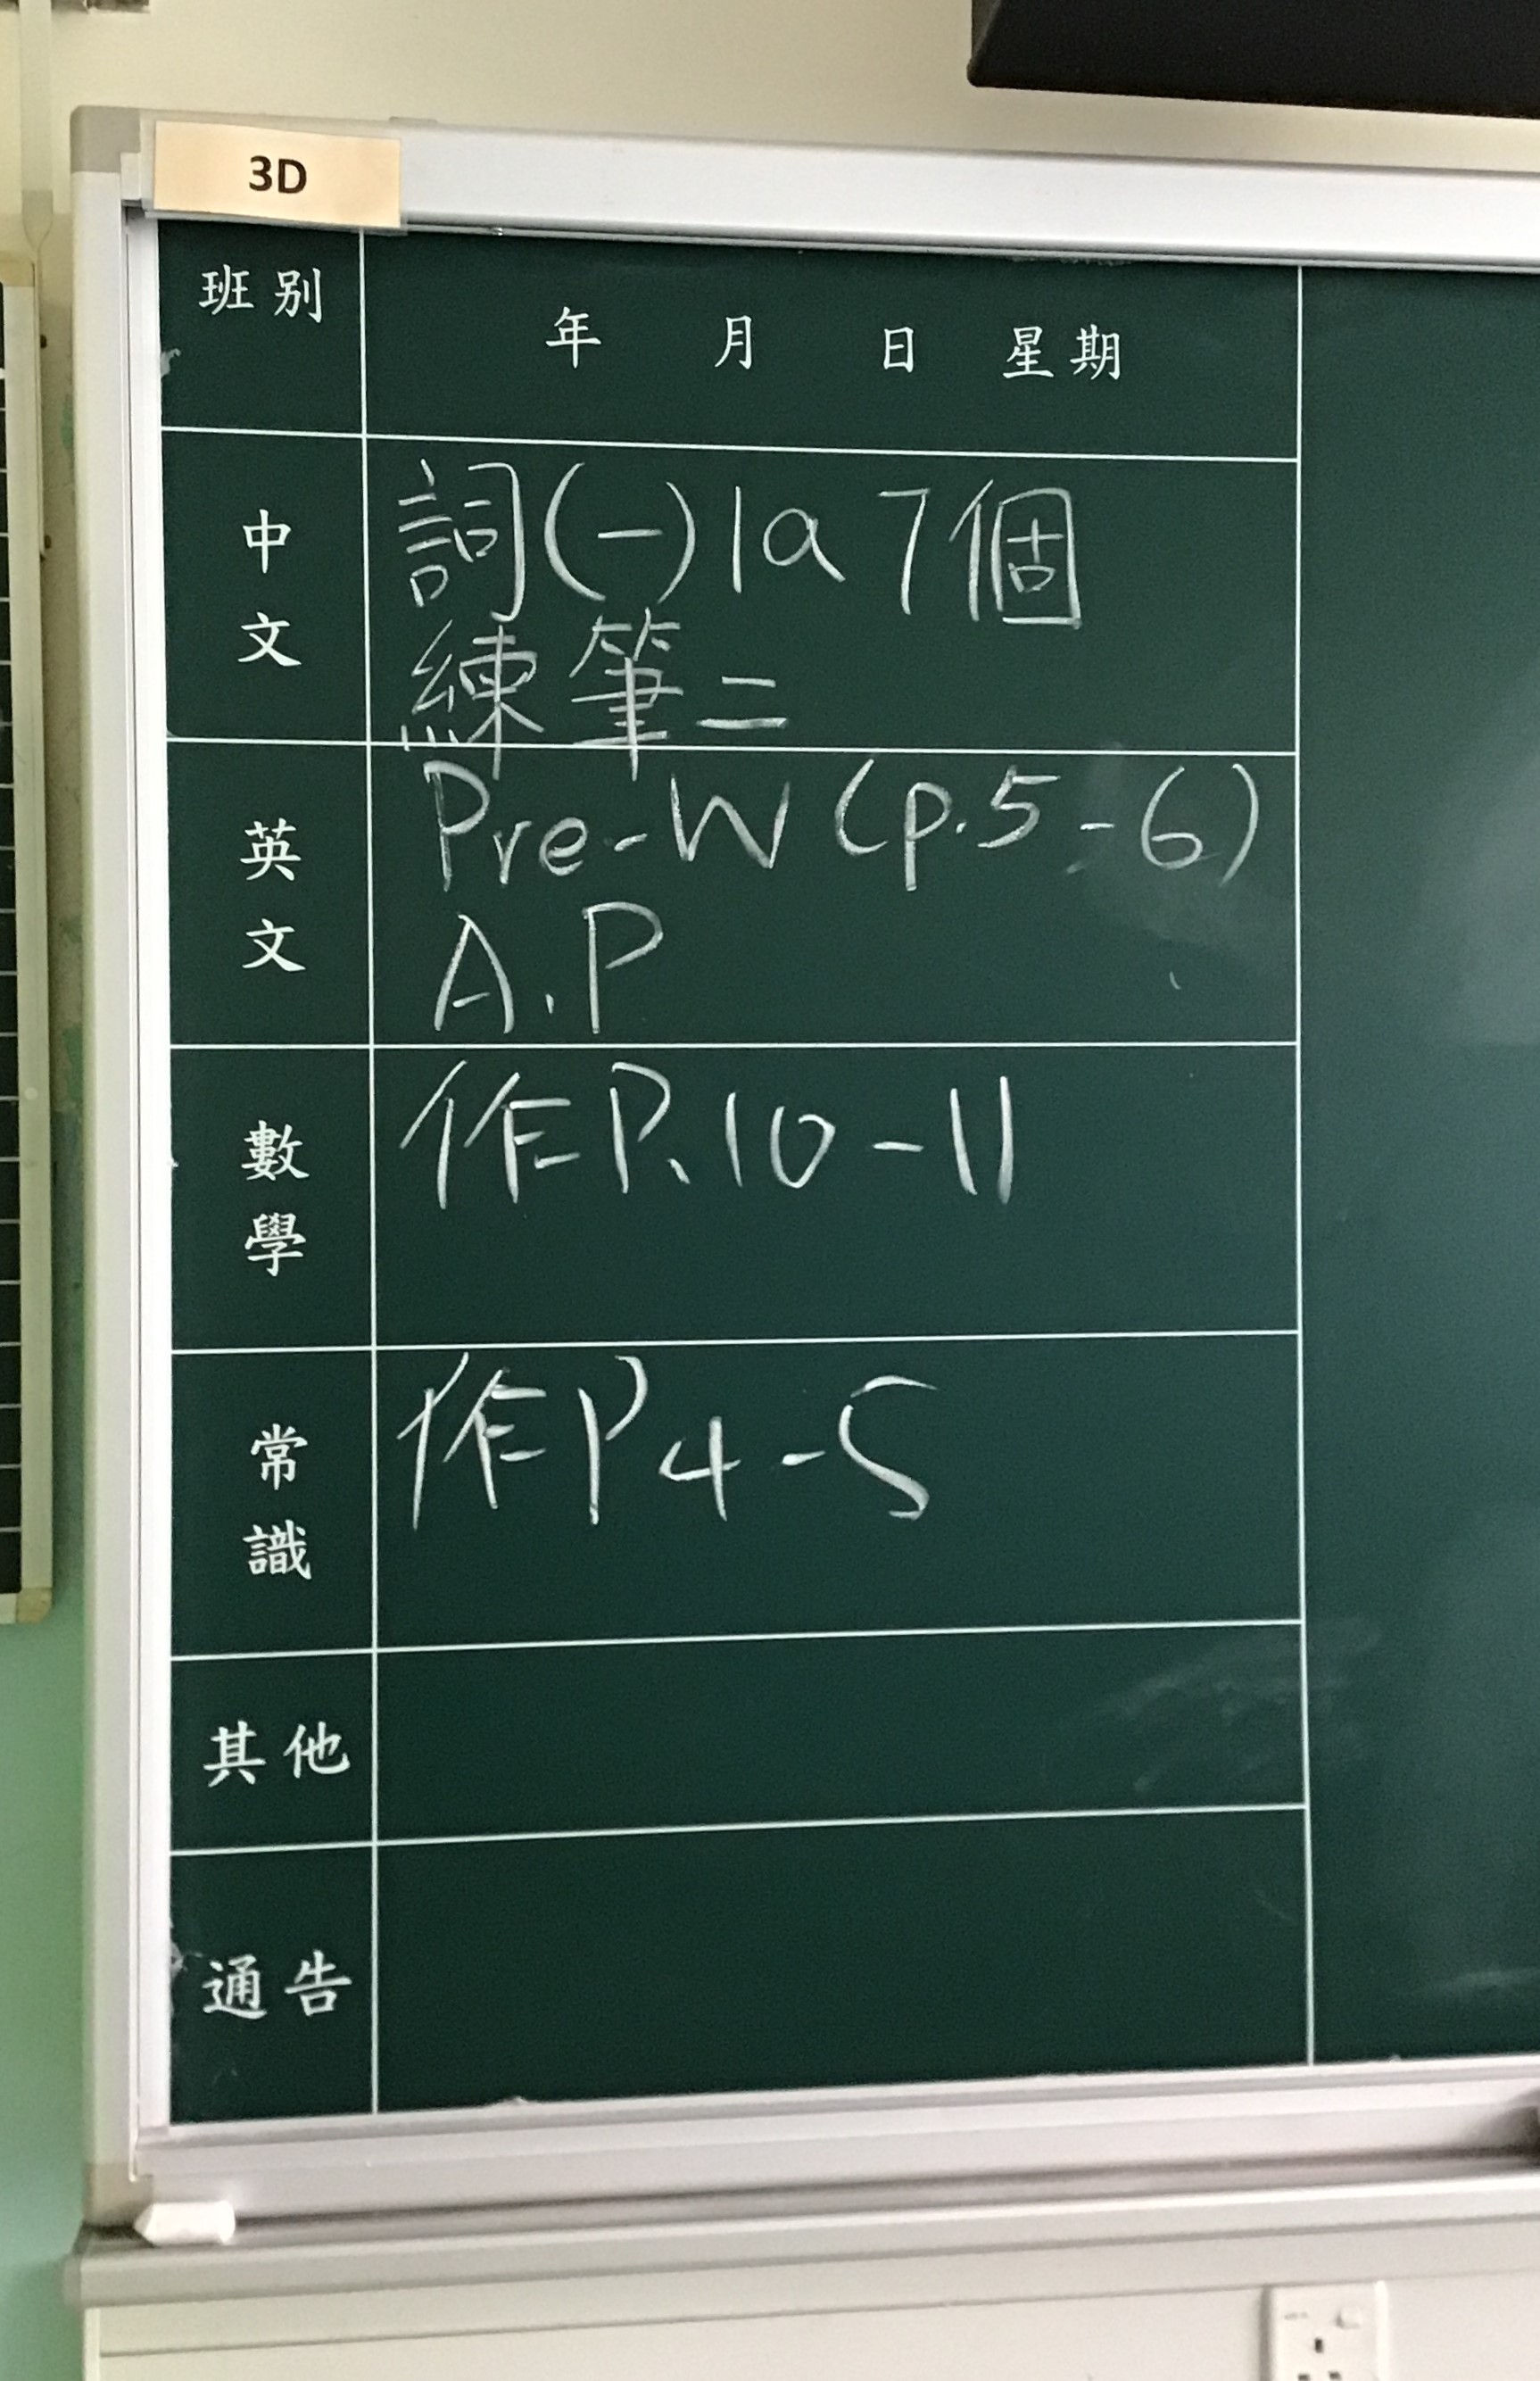 3D
班別
年 月 日 星期
中文
詞(一)1a 7個
練筆二
英文
Pre-W (p.5-6)
A.P
數學
作P.10-11
常識
作P4-5
其他
通告